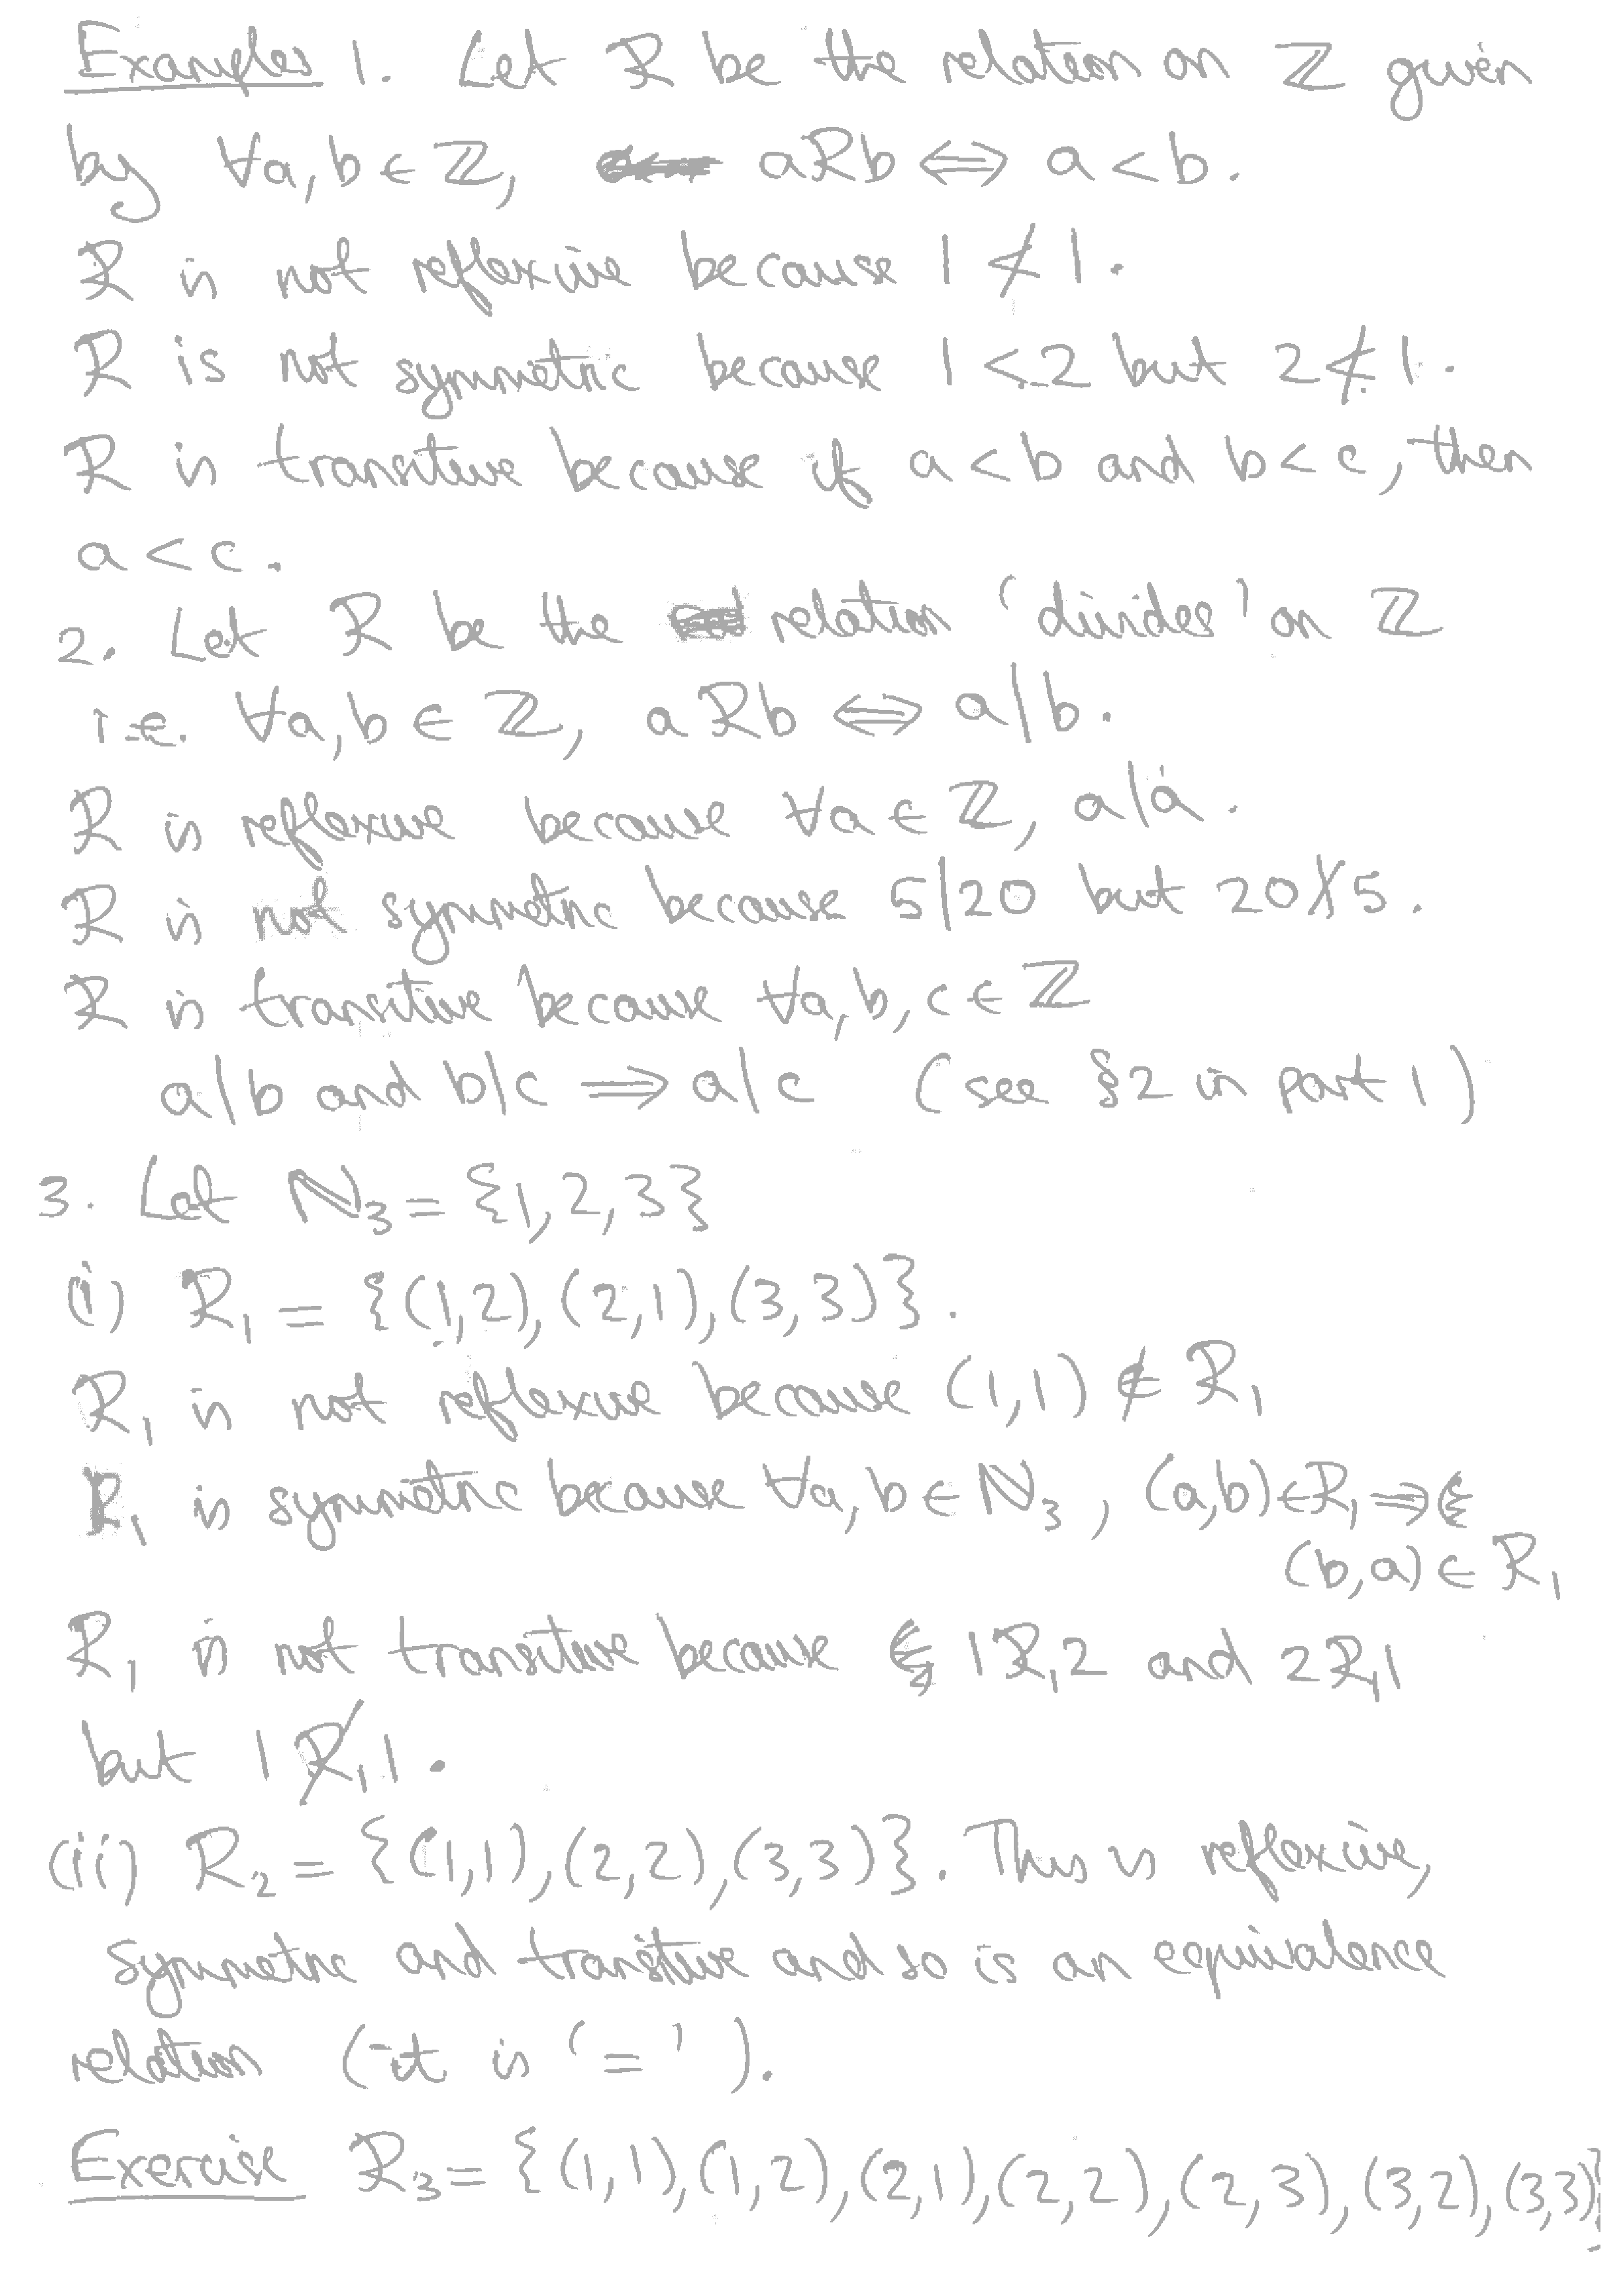 Examples 1. Let R be the relation on ℤ given
by ∀a, b ∈ ℤ, aRb ⇔ a < b.
R is not reflexive because 1 ≮ 1.
R is not symmetric because 1 < 2 but 2 ≮ 1.
R is transitive because if a < b and b < c, then
a < c.
2. Let R be the relation ‘divides’ on ℤ
i.e. ∀a, b ∈ ℤ, aRb ⇔ a|b.
R is reflexive because ∀a ∈ ℤ, a|a.
R is not symmetric because 5|20 but 20∤5.
R is transitive because ∀a, b, c ∈ ℤ
a|b and b|c ⇒ a|c (see §2 in part 1)
3. Let ℕ₃ = {1, 2, 3}
(i) R₁ = {(1,2), (2,1), (3,3)}.
R₁ is not reflexive because (1,1) ∉ R₁
R₁ is symmetric because ∀a, b ∈ ℕ₃, (a,b) ∈ R₁ ⇒
(b,a) ∈ R₁
R₁ is not transitive because 1R₁2 and 2R₁1
but 1R̸₁1.
(ii) R₂ = {(1,1), (2,2), (3,3)}. This is reflexive,
symmetric and transitive and so is an equivalence
relation (it is ‘=’).
Exercise R₃ = {(1,1), (1,2), (2,1), (2,2), (2,3), (3,2), (3,3)}